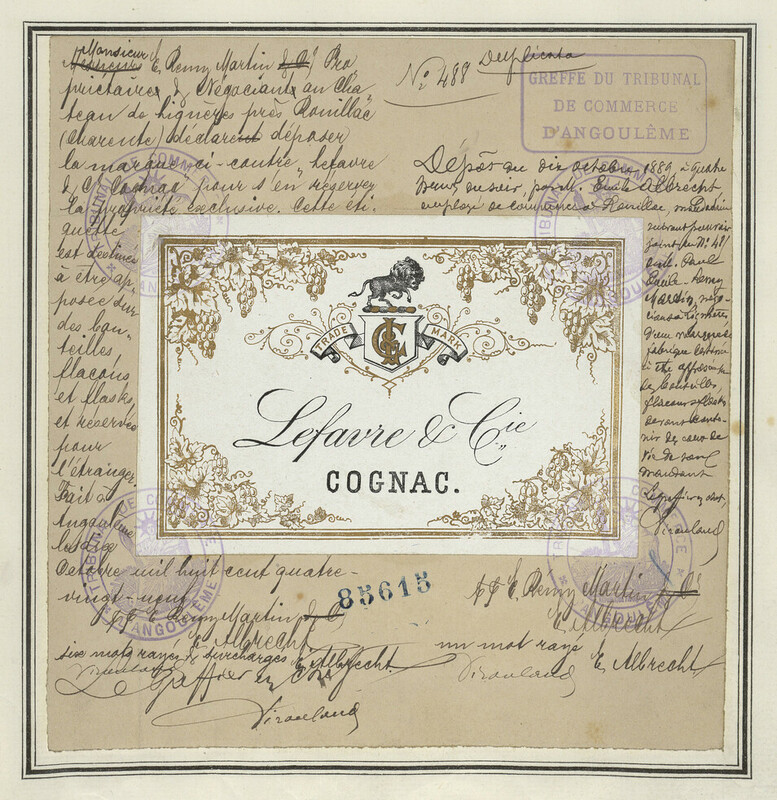 Monsieur
Messieurs E. Remy Martin & Cie Pro
priétaires & Négociant au Châ
teau de Lignères près Rouillac
(Charente) déclarent déposer
la marque ci-contre "Lefavre
& Cie Cognac" pour s'en réserver
la propriété exclusive. Cette éti
quette
est destinée
à être ap
posée sur
des bou
teilles,
flacons
et flasks,
et réservée
pour
l'étranger.
Fait à
Angoulême
le dix
Octobre mil huit cent quatre-
vingt-neuf
E. Remy Martin & Cie
E. Albrecht
six mots rayés & surchargés E. Albrecht
Le Greffier
Nº 488 Duplicata
GREFFE DU TRIBUNAL
DE COMMERCE
D'ANGOULÊME
Dépôt du dix octobre 1889, à quatre
heures du soir, par M. Emile Albrecht
employé de commerce à Rouillac, mandataire
suivant pouvoir
joint au Nº 481
de M. Paul
Emile-Remy
Martin, négo
ciant à Lignères
D'une marque de
fabrique destinée
à être apposée sur
des bouteilles,
flacons et flasks
devant conte
nir des eaux de
vie de son
mandant
Le greffier
TRADE MARK
Lefavre & Cie
COGNAC.
TRIBUNAL DE COMMERCE
D'ANGOULÊME
85615
E. Remy Martin & Cie
E. Albrecht
un mot rayé
E. Albrecht